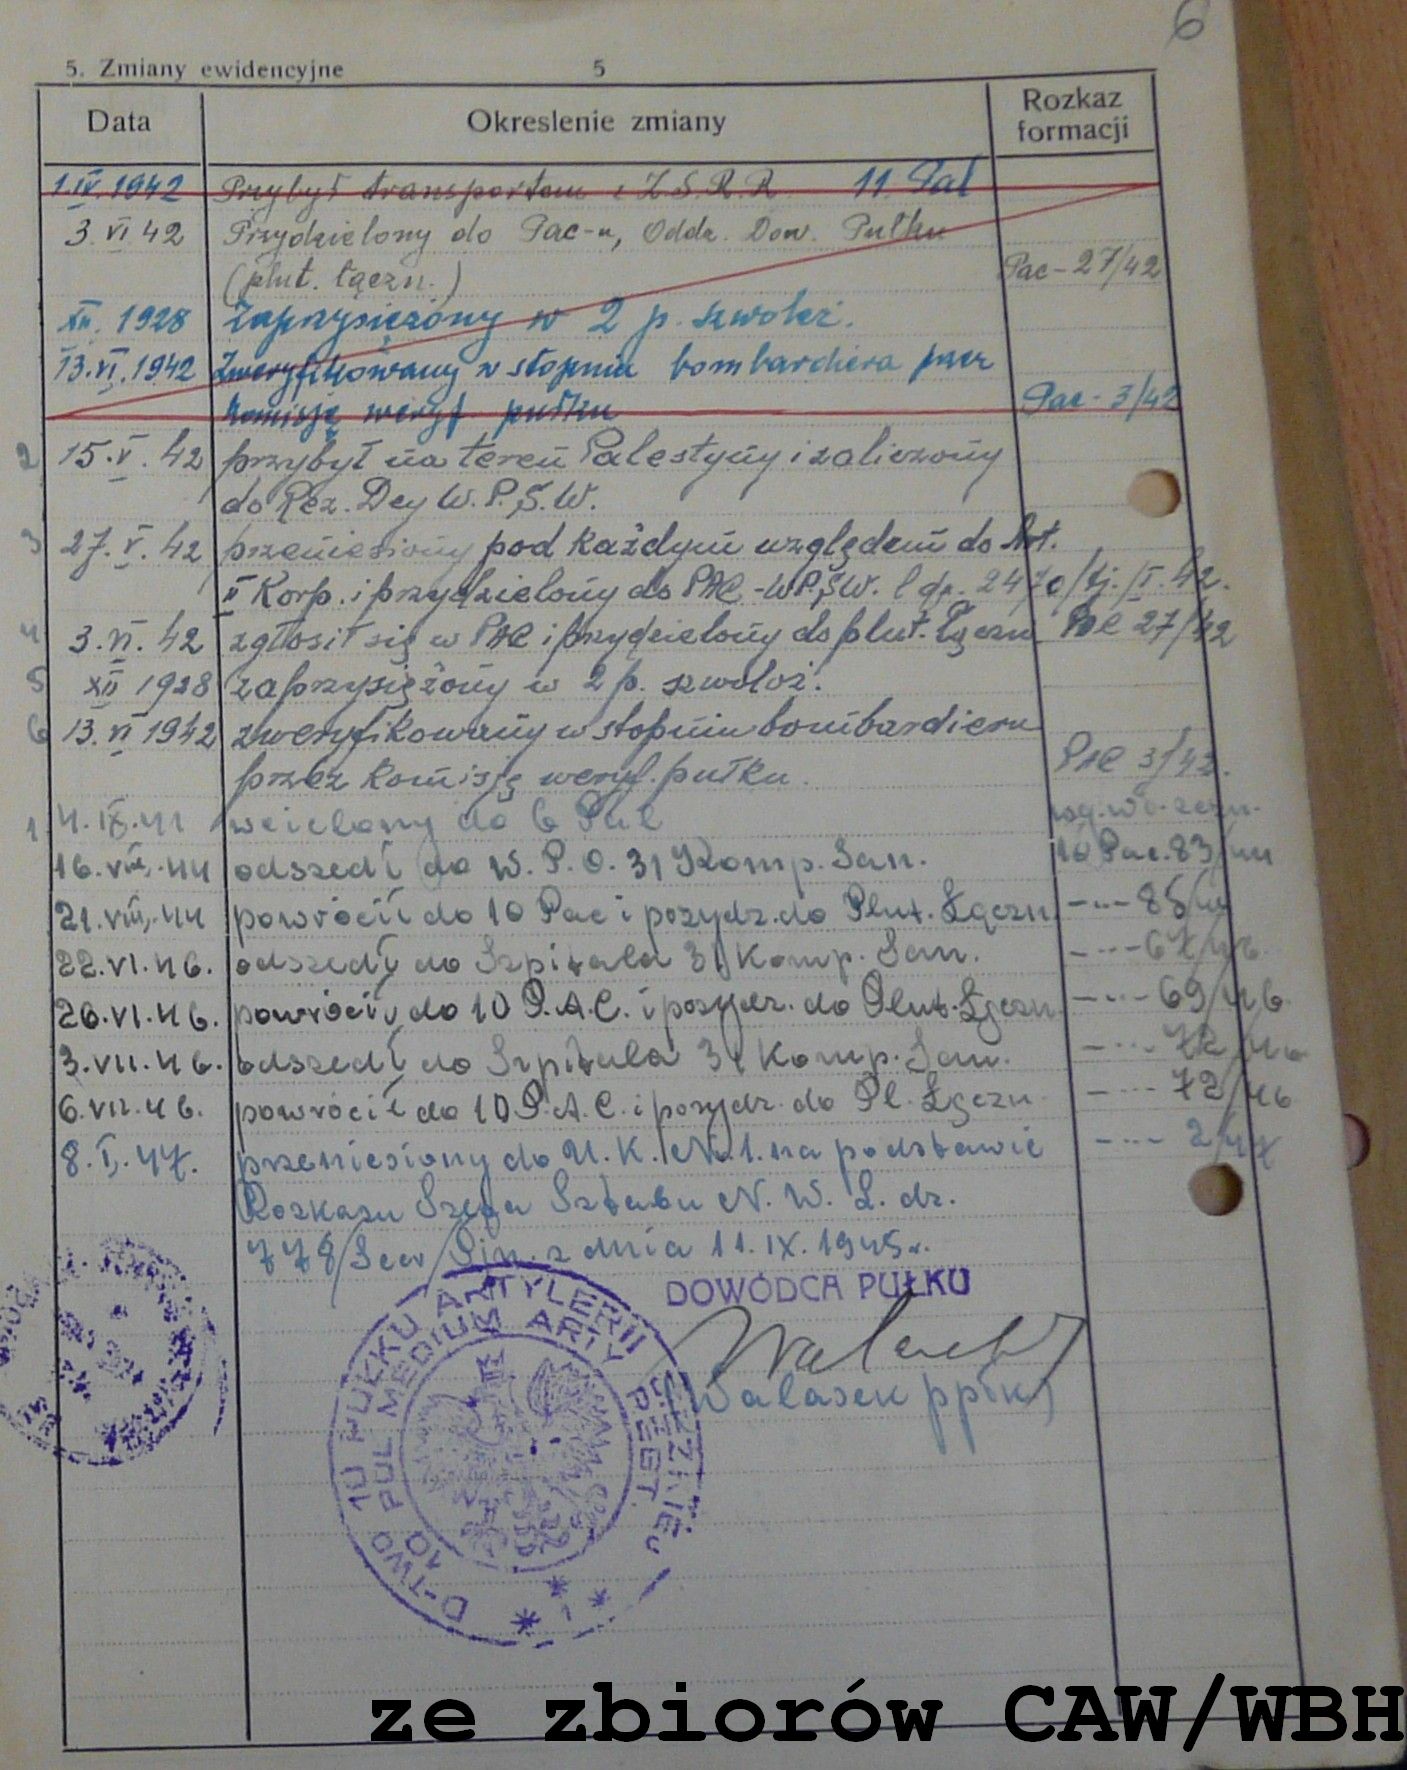 6
5. Zmiany ewidencyjne 5
Data Okreslenie zmiany Rozkaz formacji
1.IV.1942 Przybył transportem z Z.S.R.R 11. Pal
3.VI.42 Przydzielony do Pac-u, Oddz. Dow. Pułku
(plut. łączn.) Pac-27/42
XII. 1928 Zaprzysiężony w 2 p. szwoleż.
13.VI.1942 Zweryfikowany w stopniu bombardiera przez
komisję weryf pułku Pac-3/42
2 15.V.42 przybył na teren Palestyny i zaliczony
do Rez. Dcy W.P.Ś.W.
3 27.V.42 przeniesiony pod każdym względem do Art.
II Korp. i przydzielony do PAC-WPŚW. l.dz. 2470/tj./I.42.
4 3.VI.42 zgłosił się w PAC i przydzielony do plut. Łączn PAC 27/42
5 XII 1928 zaprzysiężony w 2 p. szwoleż.
6 13.VI 1942 zweryfikowany w stopniu bombardiera
przez komisję weryf. pułku. PAC 3/42.
1. 4.IX.41 wcielony do 6 Pal
16.VIII.44 odszedł do W.P.O. 31 Komp. San. 10 Pac. 83/44
21.VIII.44 powrócił do 10 Pac i przydz. do Plut. Łączn -"- 85/44
22.VI.46. odszedł do Szpitala 31 Komp. San. -"- 67/46
26.VI.46. powrócił do 10 P.A.C. i przydz. do Plut. Łączn -"- 69/46
3.VII.46. odszedł do Szpitala 31 Komp. San. -"- 72/46
6.VII.46. powrócił do 10 P.A.C. i przydz. do Pl. Łączn -"- 72/46
8.I.47. przeniesiony do U.K. Nr.1. na podstawie -"- 2/47
Rozkazu Szefa Sztabu N.W. L.dz.
778/ z dnia 11.IX.1945r.
DOWÓDCA PUŁKU
Walasek ppłk
D-TWO 10 PUŁKU ARTYLERII CIĘŻKIEJ
10 POL MEDIUM ARTY REGT.
ze zbiorów CAW/WBH